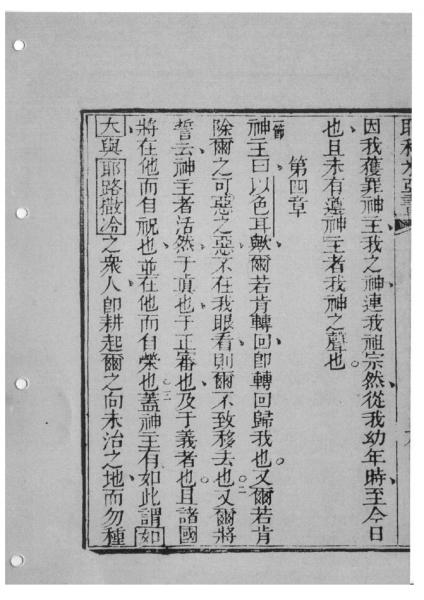 因我獲罪神主我之神連我祖宗然從我幼年時至今日
也且未有遵神主者我神之聲也
第四章
一節 神主曰以色耳歟爾若肯轉回卽轉回歸我也又爾若肯
除爾之可惡之惡不在我眼看則爾不致移去也二又爾將
誓云神主者活然于眞也于正審也及于義者也且諸國
將在他而自祝也並在他而自榮也三蓋神主有如此謂如
大與耶路撒冷之衆人卽耕起爾之向未治之地而勿種